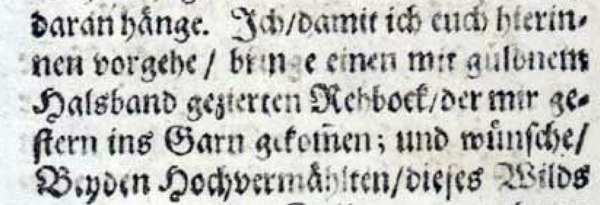 daran hänge. Ich/damit ich euch hierin-
nen vorgehe / bringe einen mit güldnem
Halsband gezierten Rehbock/der mir ge-
stern ins Garn gekom̃en; und wünsche/
Beyden Hochvermählten/dieses Wilds